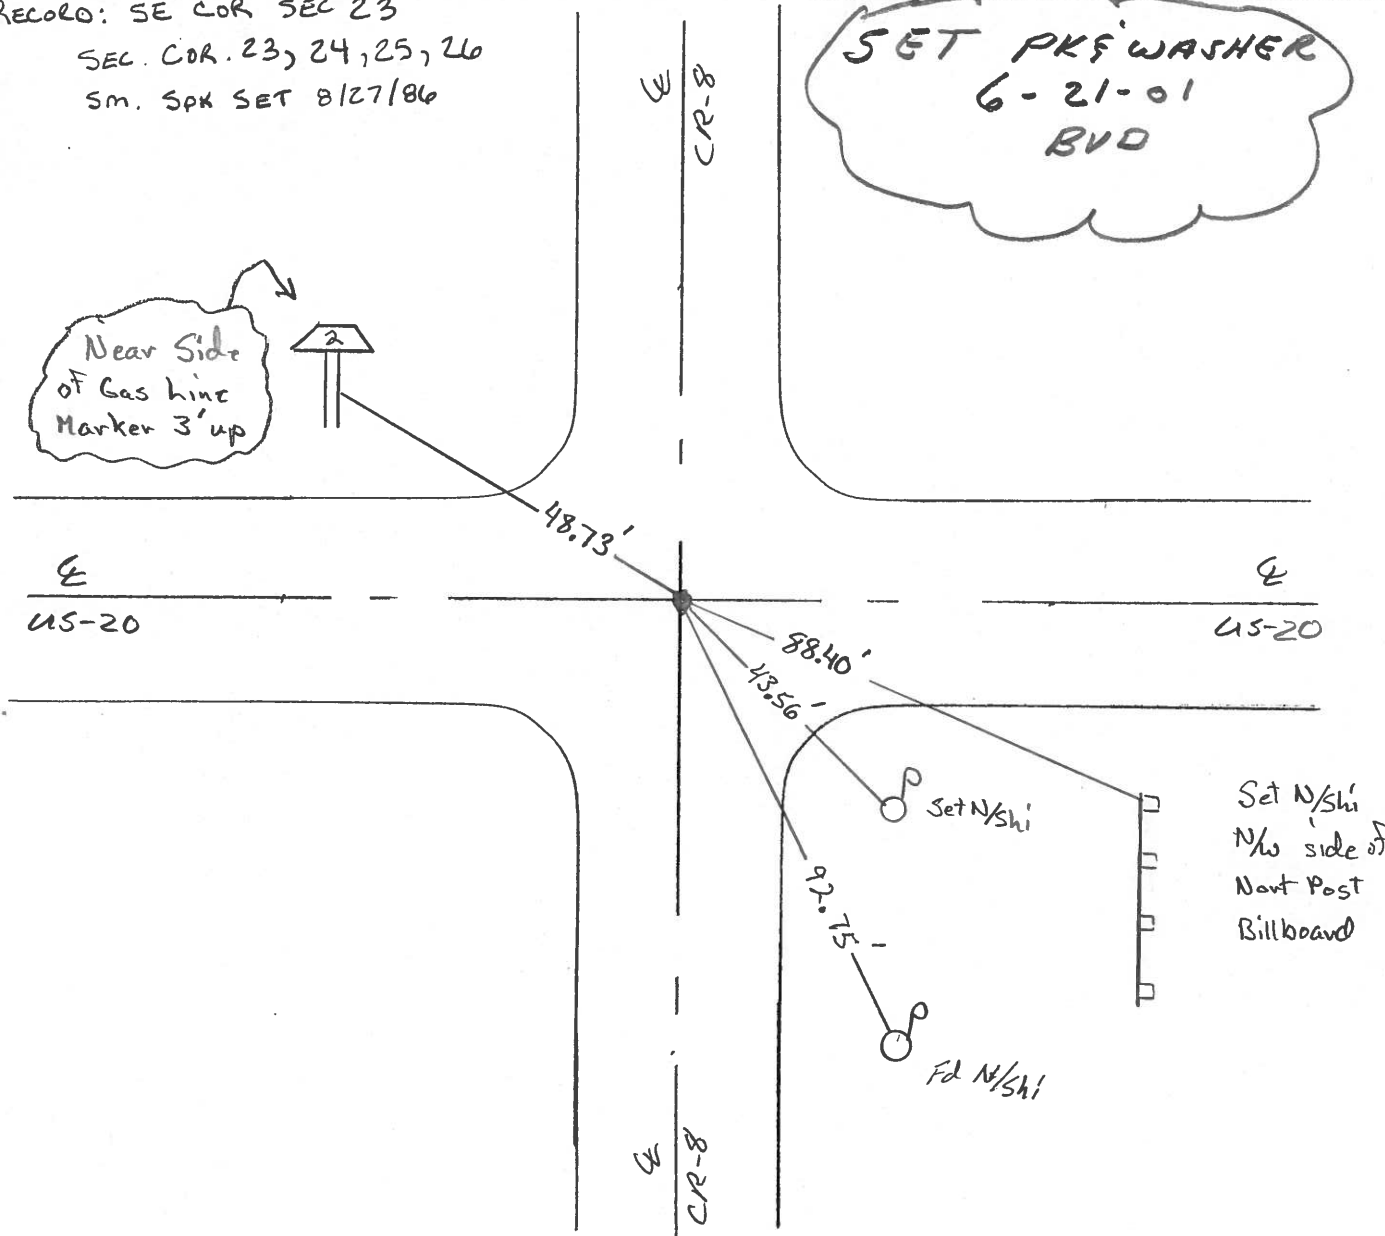 RECORD: SE COR SEC 23
SEC. COR. 23, 24, 25, 26
Sm. SPK SET 8/27/86
SET PK & WASHER
6-21-01
BVD
℄
CR-8
Near Side
of Gas Line
Marker 3' up
2
48.73'
℄
US-20
℄
US-20
88.40'
43.56'
Set N/Shi
Set N/Shi
N/W side of
Nort Post
Billboard
92.75'
Fd N/Shi
℄
CR-8